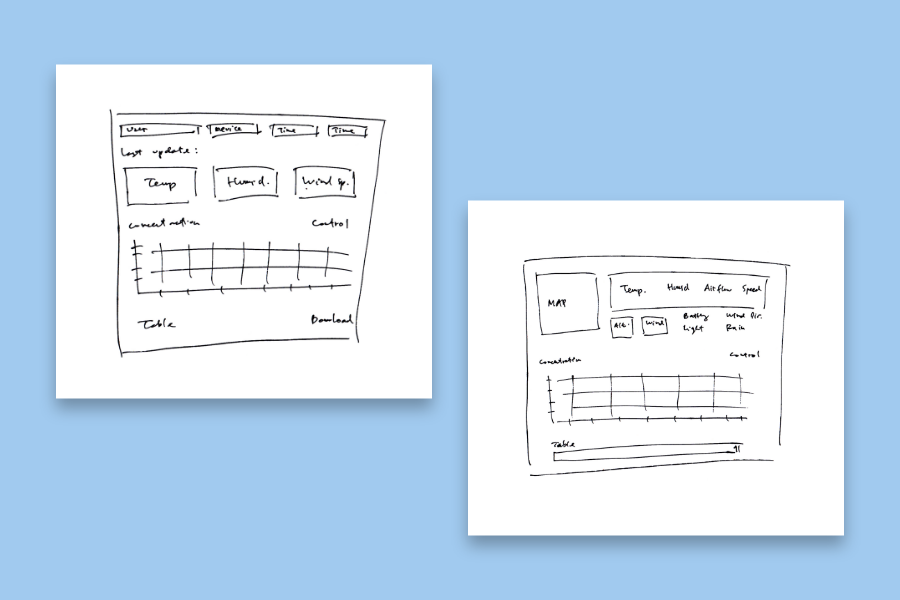 User Device Time Time
Last update:
Temp Humid. Wind Sp.
Concentration Control
Table Download
MAP
Temp. Humid Airflow Speed
Alt. Wind Battery Wind Dir.
Light Rain
Concentration Control
Table